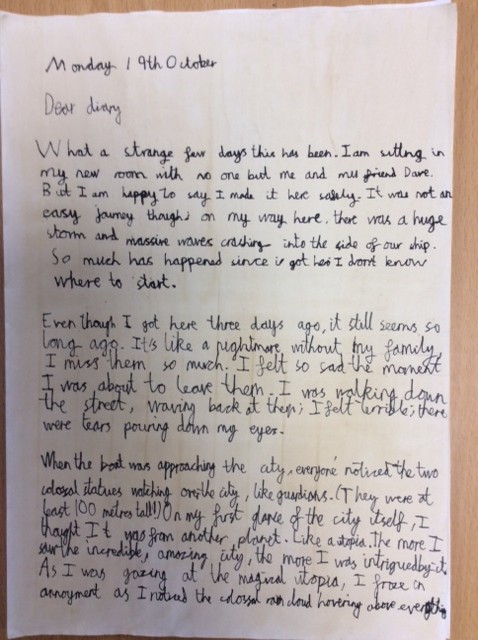 Monday 19th October
Dear diary
What a strange few days this has been. I am sitting in
my new room with no one but me and my friend Dave.
But I am happy to say I made it here safely. It was not an
easy journey though; on my way here, there was a huge
storm and massive waves crashing into the side of our ship.
So much has happened since i got her I don't know
where to start.
Even though I got here three days ago, it still seems so
long ago. It's like a nightmare without my family,
I miss them so much. I felt so sad the moment
I was about to leave them. I was walking down
the street, waving back at them; I felt terrible; there
were tears pouring down my eyes.
When the boat was approaching the city, everyone noticed the two
colossal statues watching over the city, like guardians. (They were at
least 100 metres tall!) On my first glance of the city itself, I
thought It was from another planet. Like a utopia. The more I
saw the incredible, amazing city, the more I was intrigued by it.
As I was gazing at the magical utopia, I froze in
annoyment as I noticed the colossal rain cloud hovering above everything